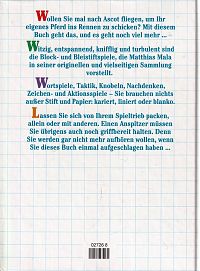 Wollen Sie mal nach Ascot fliegen, um Ihr
eigenes Pferd ins Rennen zu schicken? Mit diesem
Buch geht das, und es geht noch viel mehr ... –
Witzig, entspannend, knifflig und turbulent sind
die Block- und Bleistiftspiele, die Matthias Mala
in seiner originellen und vielseitigen Sammlung
vorstellt.
Wortspiele, Taktik, Knobeln, Nachdenken,
Zeichen- und Aktionsspiele – Sie brauchen nichts
außer Stift und Papier: kariert, liniert oder blanko.
Lassen Sie sich von Ihrem Spieltrieb packen,
allein oder mit anderen. Einen Anspitzer müssen
Sie übrigens auch noch griffbereit halten. Denn
Sie werden gar nicht mehr aufhören wollen, wenn
Sie dieses Buch einmal aufgeschlagen haben ...
02726 8